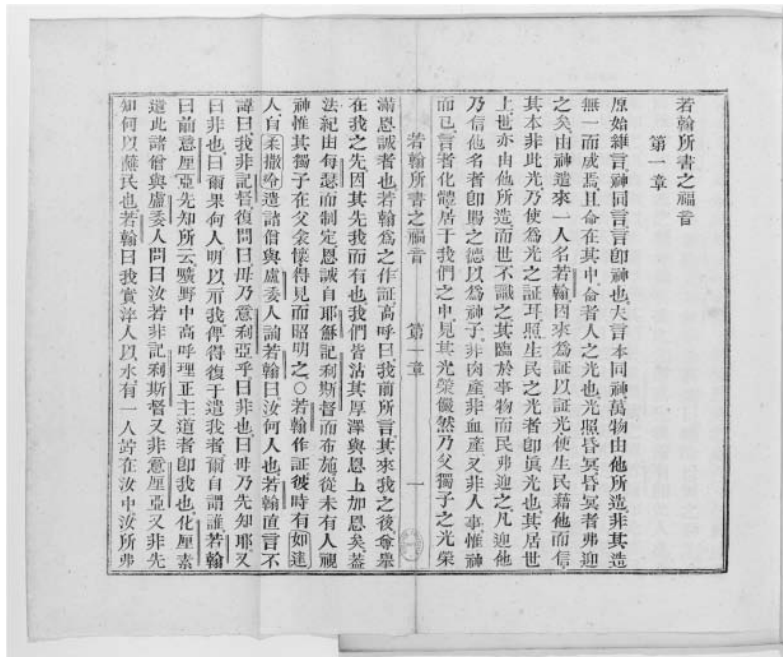 若翰所書之福音
第一章
原始雖言神同言言即神也夫言本同神萬物由他所造非其造
無一而成焉且命在其中命者人之光也光照昏冥昏冥者弗迎
之矣由神遣來一人名若翰因來為証以証光使生民藉他而信
其本非此光乃使為光之証耳照生民之光者即眞光也其居世
上世亦由他所造而世不識之其臨於事物而民弗迎之凡迎他
乃信他名者即賜之德以為神子非肉產非血產又非人事惟神
而已言者化體居于我們之中見其光榮儼然乃父獨子之光榮
若翰所書之福音 第一章 一
滿恩誠者也若翰為之作証高呼曰我前所言其來我之後尊舉
在我之先因其先我而有也我們皆沾其厚澤與恩上加恩矣蓋
法紀由每瑟而制定恩誠自耶穌記利斯督而布施從未有人視
神惟其獨子在父衾懷得見而昭明之○若翰作証彼時有如達
人自柔撒冷遣諸僧與盧委人論若翰曰汝何人也若翰直言不
諱曰我非記督復問曰毋乃意利亞乎曰非也曰毋乃先知耶又
曰非也曰爾果何人明以示我俾得復于遣我者爾自謂誰若翰
曰前意厘亞先知所云曠野中高呼理正主道者即我也化厘素
遣此諸僧與盧委人問曰汝若非記利斯督又非意厘亞又非先
知何以蘸民也若翰曰我實淬人以水有一人竚在汝中汝所弗